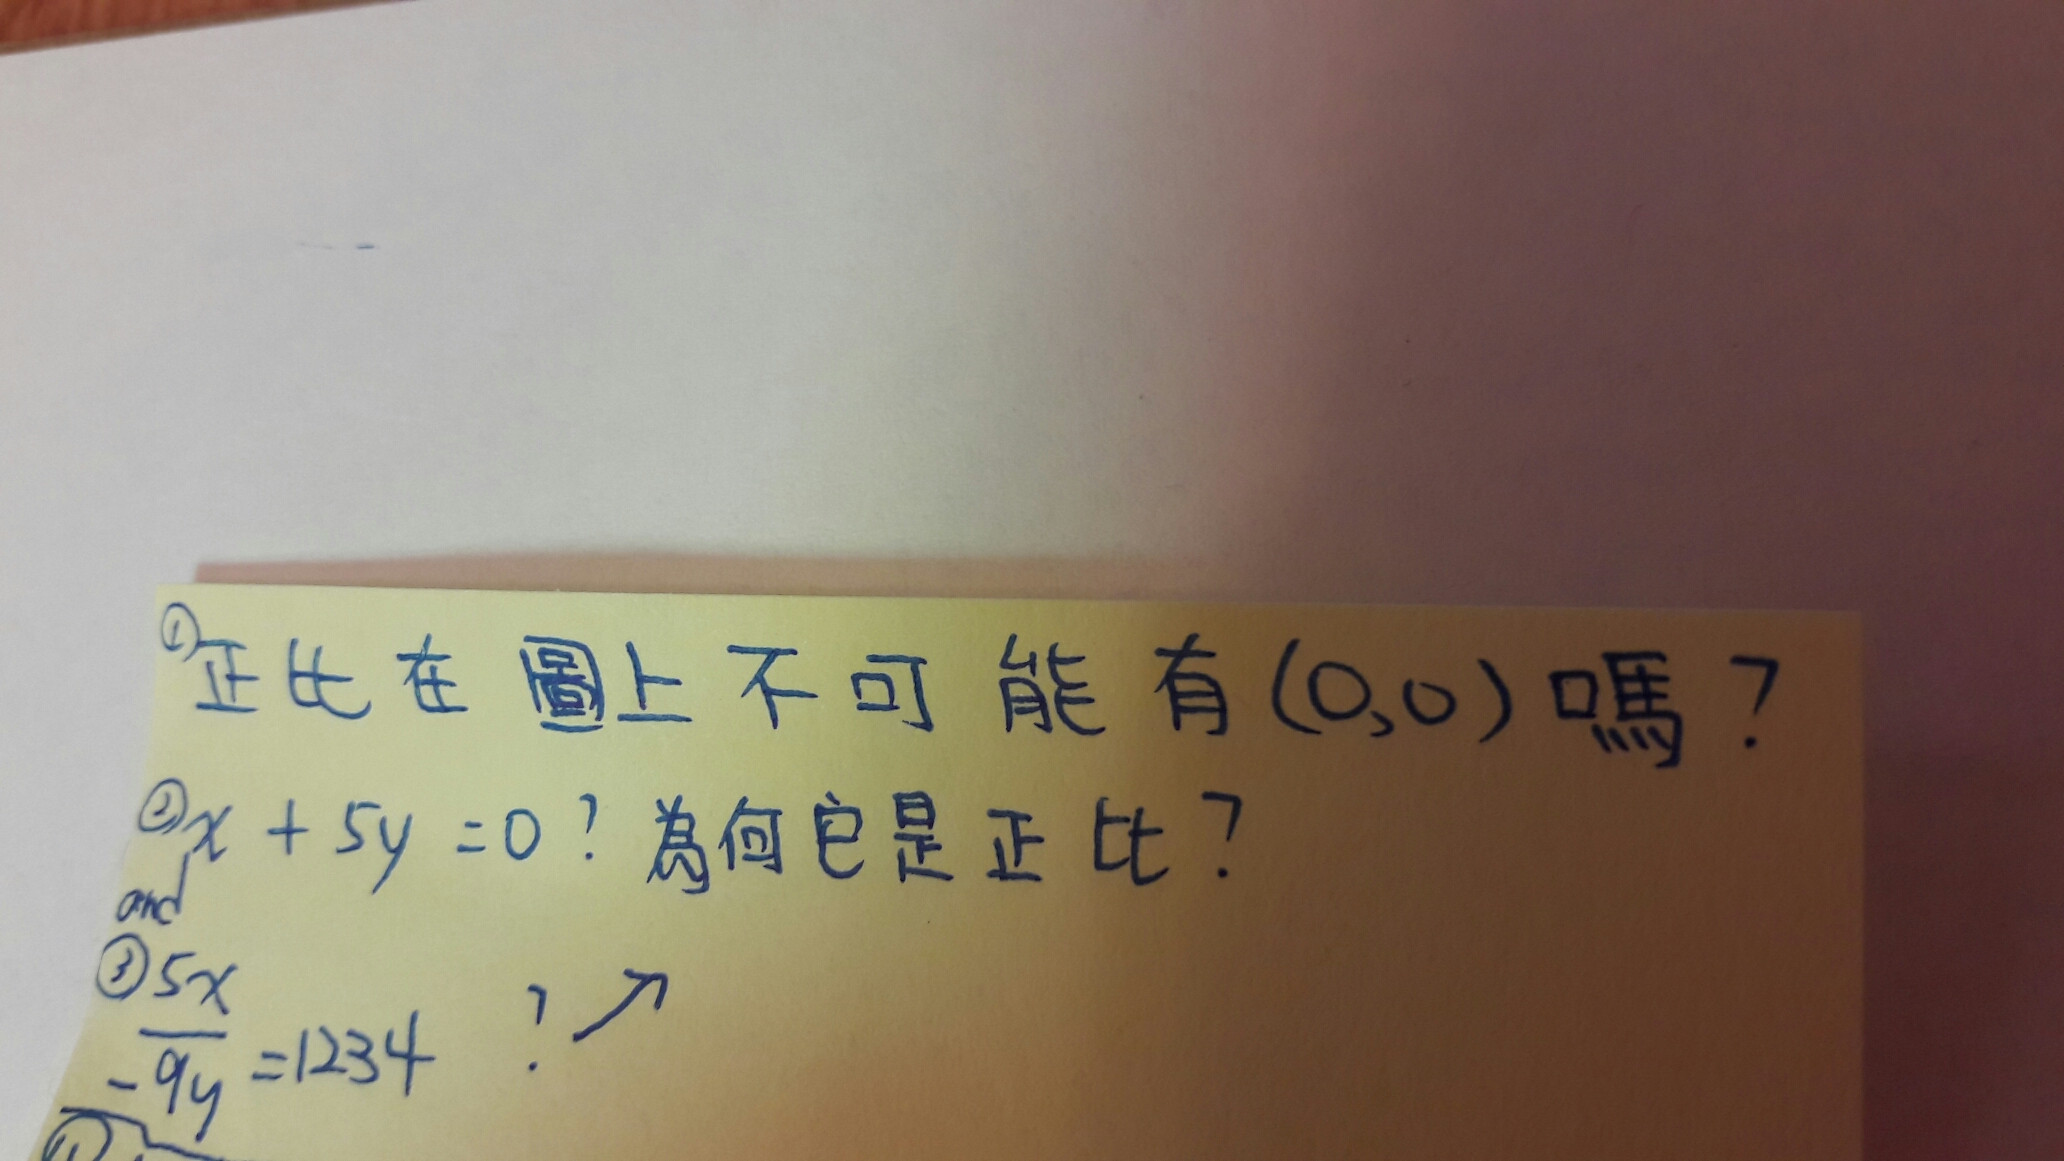 ①正比在圖上不可能有(0,0)嗎?
②x + 5y = 0? 為何它是正比?
and
③5x
-9y =1234 ?↗